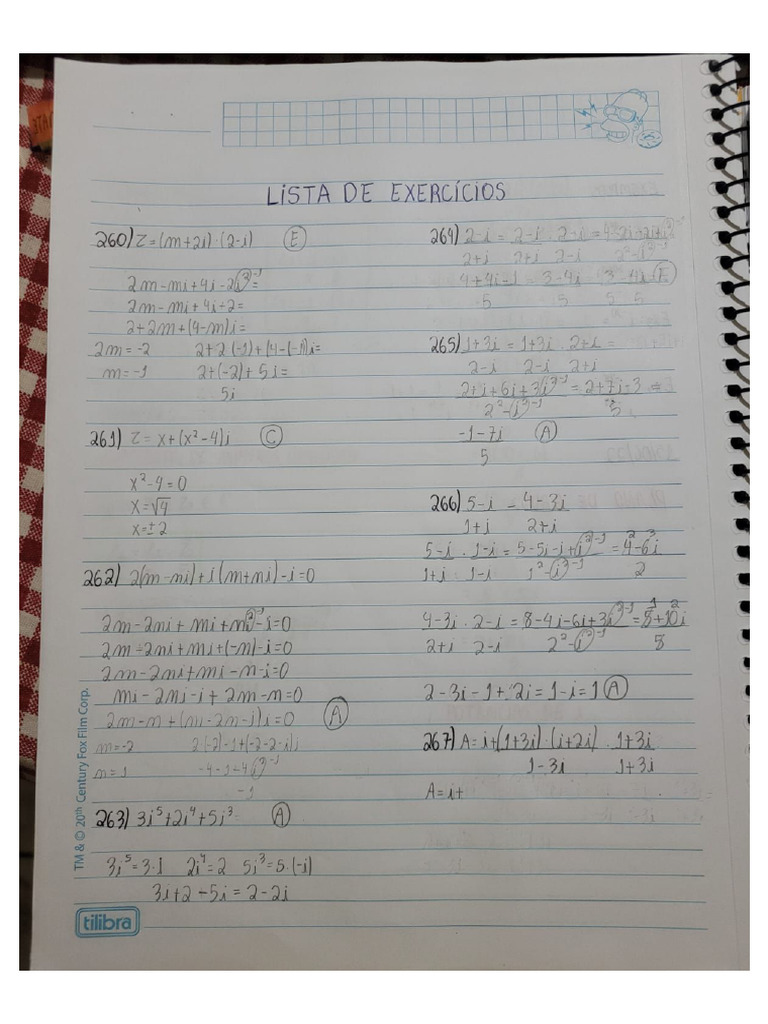 LISTA DE EXERCÍCIOS
260) Z=(m+2i)·(2-i) (E)
2m-mi+4i-2i²⁻¹=
2m-mi+4i+2=
2+2m+(4-m)i=
2m=-2 2+2·(-1)+(4-(-1)i=
m=-1 2+(-2)+5i=
5i
261) Z=x+(x²-4)i (C)
x²-4=0
x=√4
x=±2
262) 2(m-ni)+i(m+ni)-i=0
2m-2ni+mi+ni²⁻¹-i=0
2m-2ni+mi+(-n)-i=0
2m-2ni+mi-n-i=0
mi-2ni-i+2m-n=0
2m-n+(mi-2m-i)i=0 (A)
m=-2 2(-2)-1+(-2-2-i)i
n=1 -4-1+4i²⁻¹
-1
263) 3i⁵+2i⁴+5i³= (A)
3i⁵=3·1 2i⁴=2 5i³=5·(-i)
3i+2-5i=2-2i
264) 2-i = 2-i · 2-i = 4-2i-2i+i²⁻¹
2+i 2+i 2-i 2²-i²⁻¹
4+4i-1 = 3-4i 3 -4i (E)
5 5 5 5
265) 1+3i = 1+3i · 2+i =
2-i 2-i 2+i
2+i+6i+3i²⁻¹ = 2+7i-3 =
2²-i²⁻¹ 5
-1-7i (A)
5
266) 5-i - 4-3i
1+i 2+i
5-i · 1-i = 5-5i-i+i²⁻¹ = 4²-6³i
1+i 1-i 1²-i²⁻¹ 2
4-3i · 2-i = 8-4i-6i+3i²⁻¹ = 5¹+10²i
2+i 2-i 2²-i²⁻¹ 5
2-3i-1+2i=1-i=1 (A)
267) A=i+(1+3i)·(i+2i) · 1+3i
1-3i 1+3i
A=i+
TM & © 20th Century Fox Film Corp.
tilibra